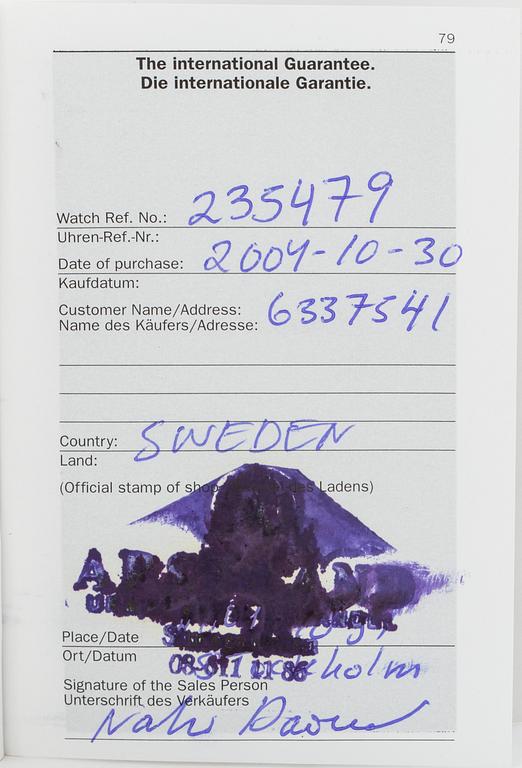 79
The international Guarantee.
Die internationale Garantie.
Watch Ref. No.: 235479
Uhren-Ref.-Nr.:
Date of purchase: 2004-10-30
Kaufdatum:
Customer Name/Address: 6337541
Name des Käufers/Adresse:
Country: SWEDEN
Land:
(Official stamp of shop des Ladens)
Place/Date
Ort/Datum Stockholm
08-611 11 86
Signature of the Sales Person
Unterschrift des Verkäufers